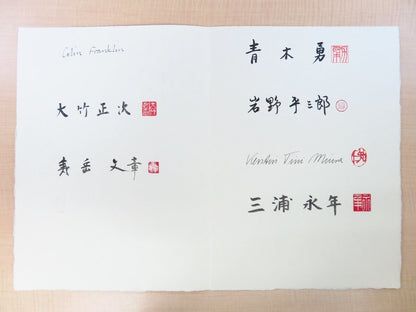 Colin Franklin
大竹正次
寿岳 文章
青木勇
岩野平三郎
Kerstin Tini Miura
三浦永年